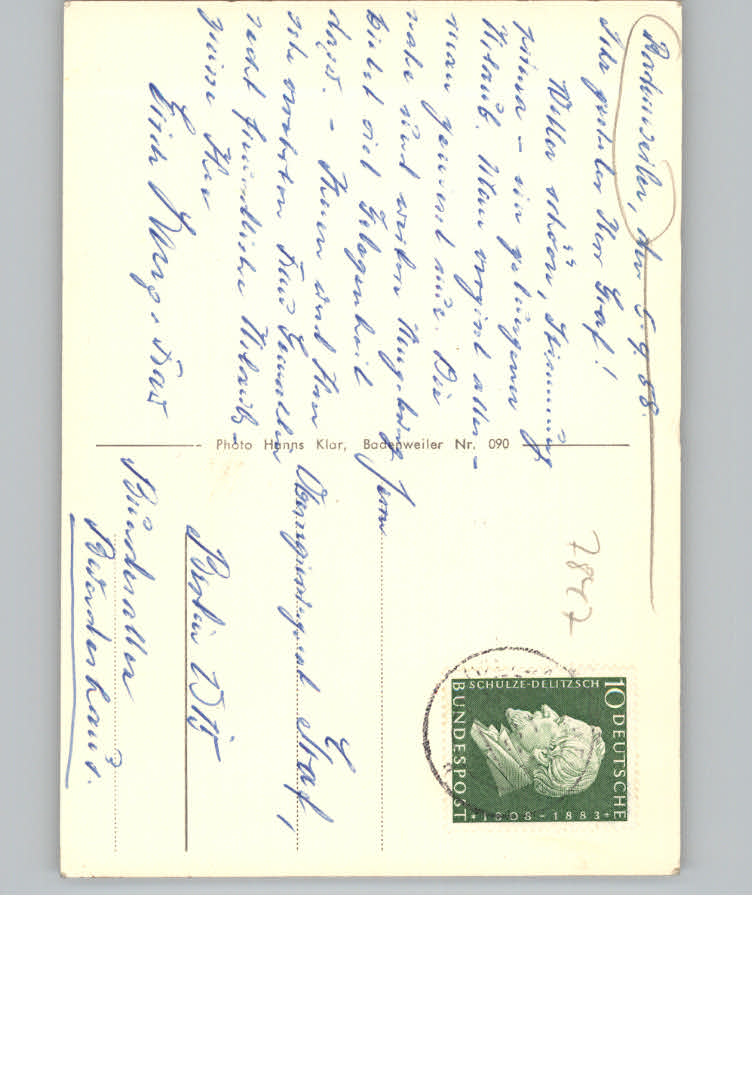 Badenweiler, den 5.9.58.
Sehr geehrter Herr Graf!
Wetter schön, Stimmung
prima – ein gelungener
Urlaub. Man vergißt alles –
man genießt nur. Die
nahe und weitere Umgebung
bietet viel Gelegenheit
dazu. – Ihnen und Ihrer
sehr verehrten Frau Gemahlin
recht freundliche Urlaubs-
grüsse Ihr
Erich u. Frau
Photo Hanns Klar, Badenweiler Nr. 090
7847
10 DEUTSCHE
BUNDESPOST
SCHULZE-DELITZSCH
1808 - 1883
Herrn
Oberregierungsrat Graf,
Berlin W 15
Bundesallee
Bundeshaus.